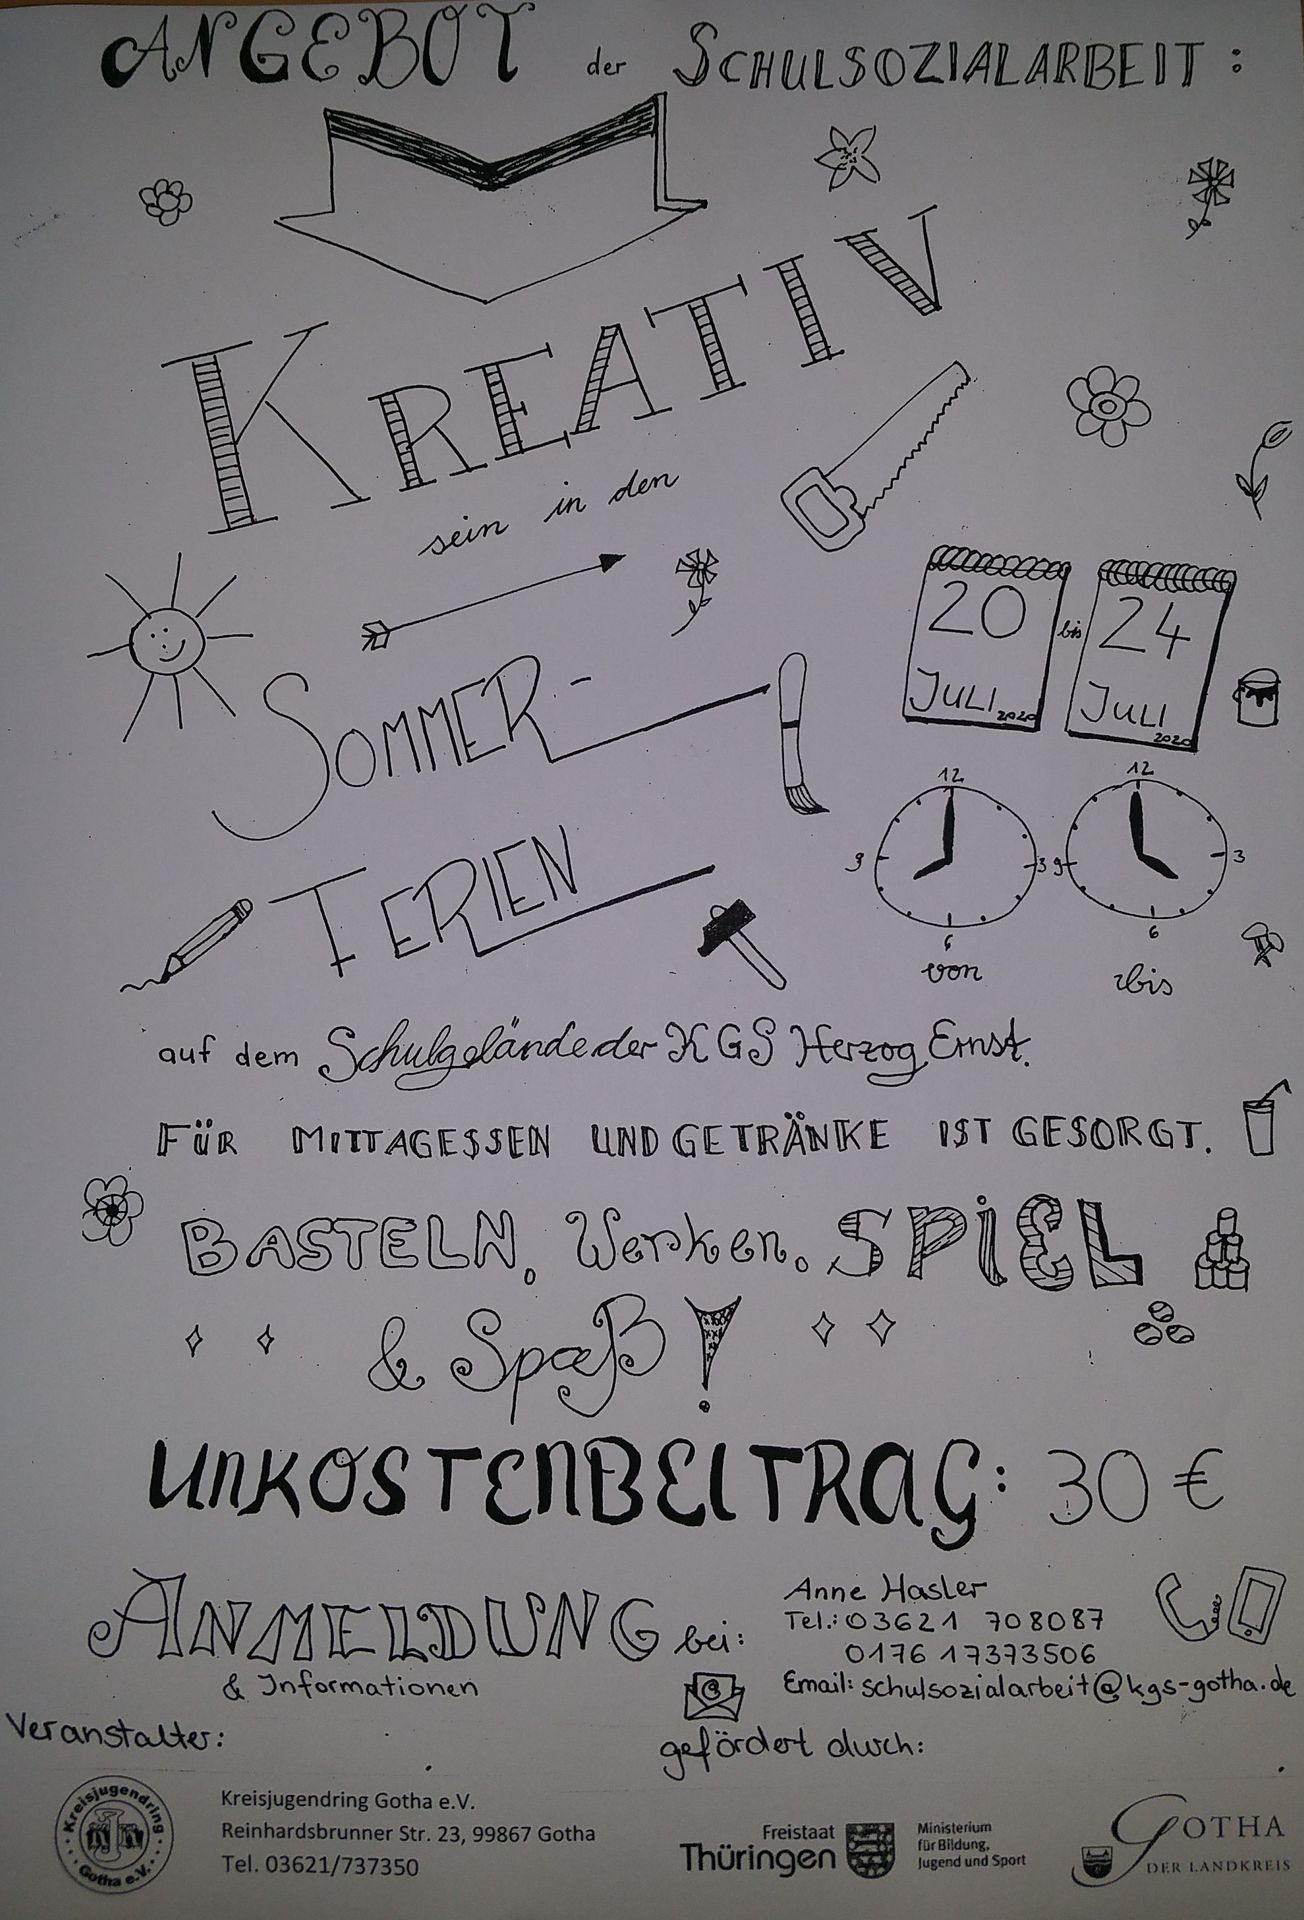 ANGEBOT der SCHULSOZIALARBEIT:
KREATIV
sein in den
SOMMER-
FERIEN
20 JULI 2020 bis 24 JULI 2020
12 3 6 9
12 3 6 9
von bis
auf dem Schulgelände der KGS Herzog Ernst.
FÜR MITTAGESSEN UND GETRÄNKE IST GESORGT.
BASTELN, Werken, SPiEL
& Spaß!
UNKOSTENBEITRAG: 30 €
ANMELDUNG bei:
& Informationen
Anne Hasler
Tel.: 03621 708087
0176 17373506
Email: schulsozialarbeit@kgs-gotha.de
Veranstalter:
Kreisjugendring Gotha e.V.
Kreisjugendring Gotha e.V.
Reinhardsbrunner Str. 23, 99867 Gotha
Tel. 03621/737350
gefördert durch:
Freistaat
Thüringen
Ministerium
für Bildung,
Jugend und Sport
GOTHA
DER LANDKREIS